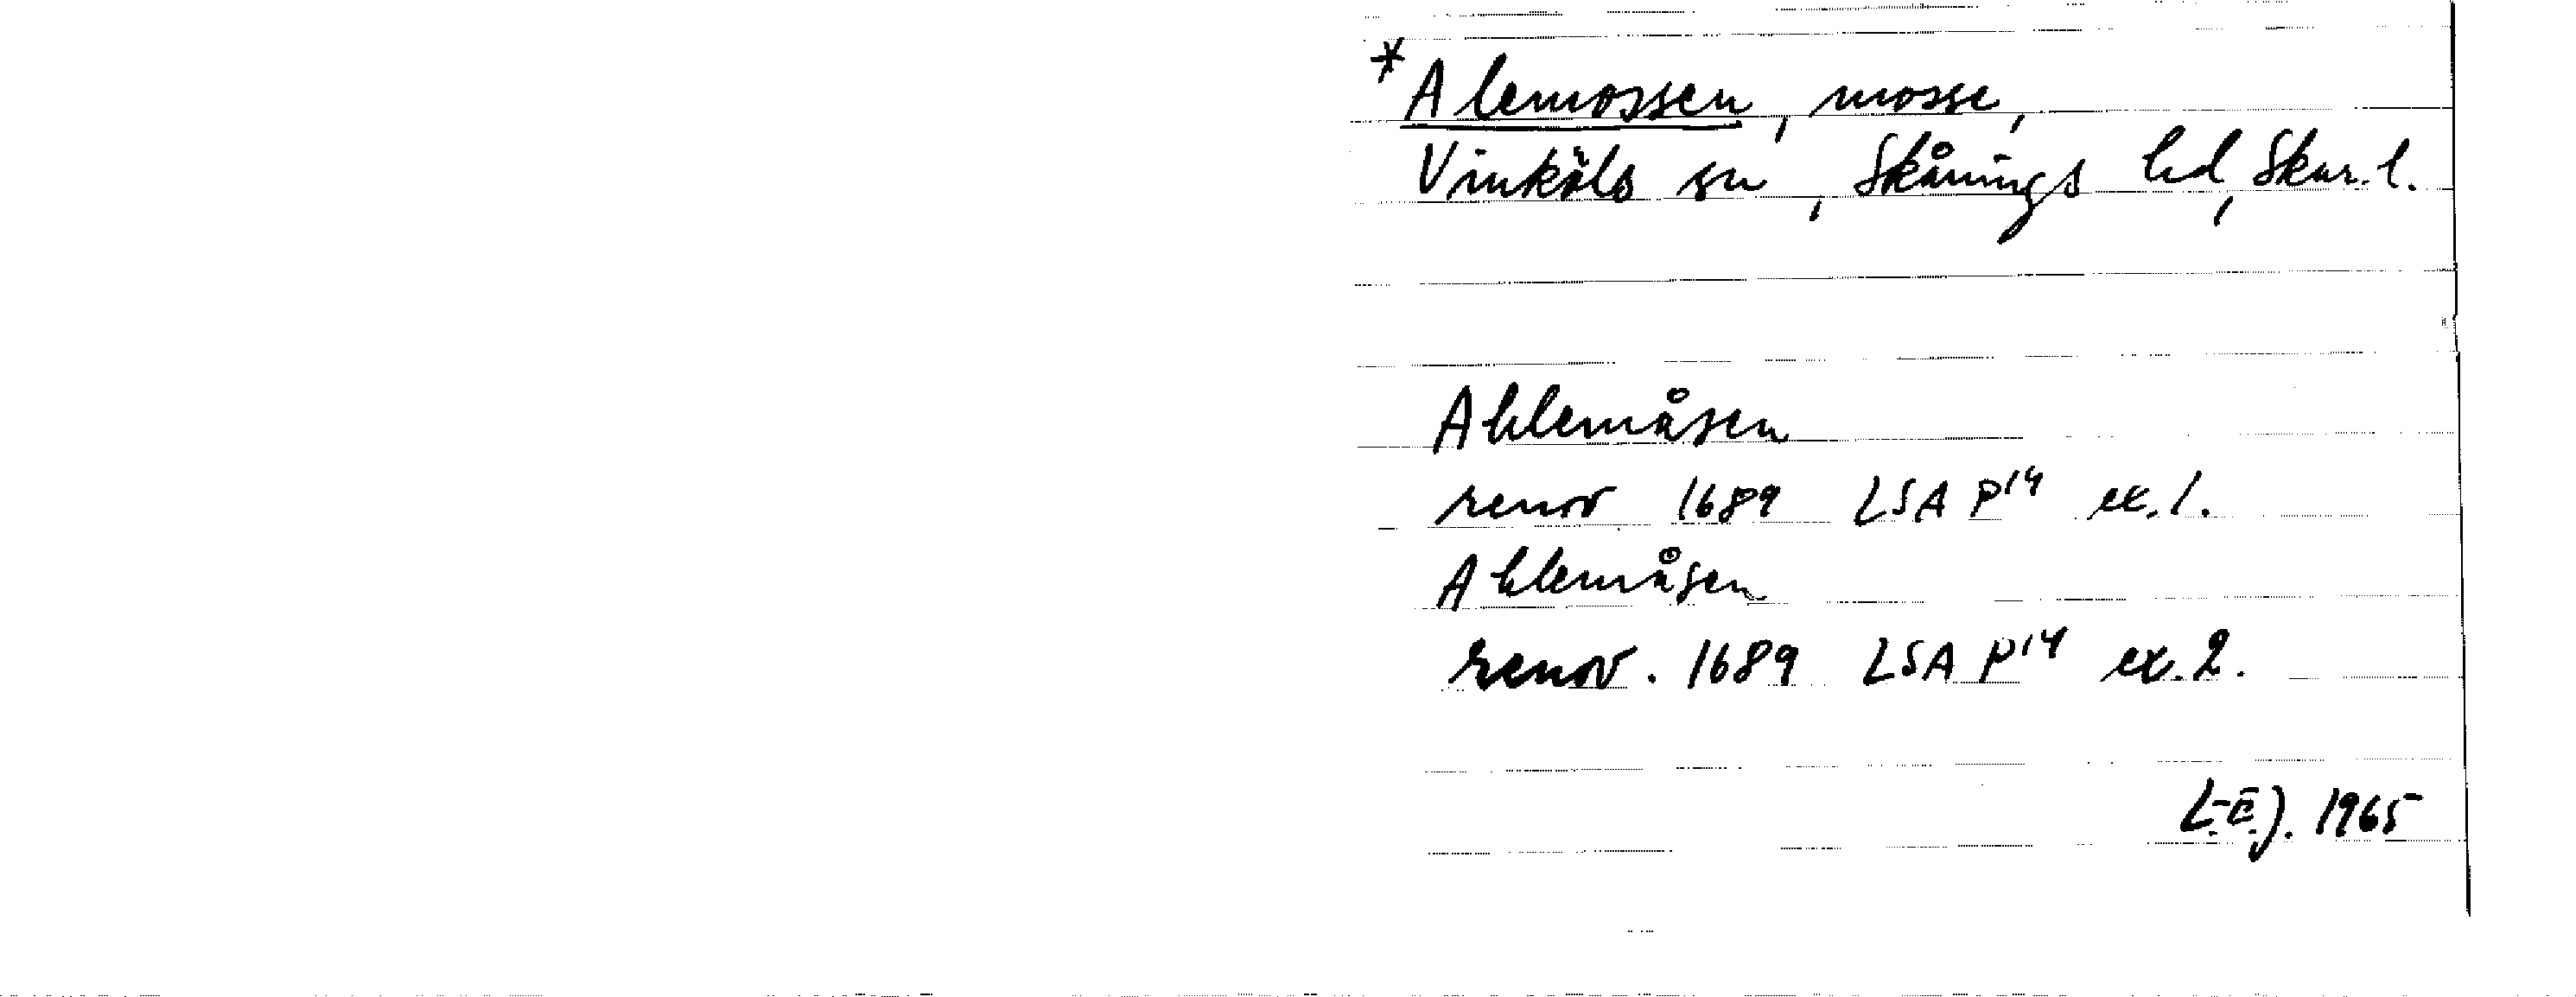 *Alemossen, mosse,
Vinköls sn, Skånings hd, Skar. l.
Ahlemåsen
renov 1689 LSA P14 ex. 1.
Ahlemåsen
renov. 1689 LSA P14 ex. 2.
L-E J. 1965